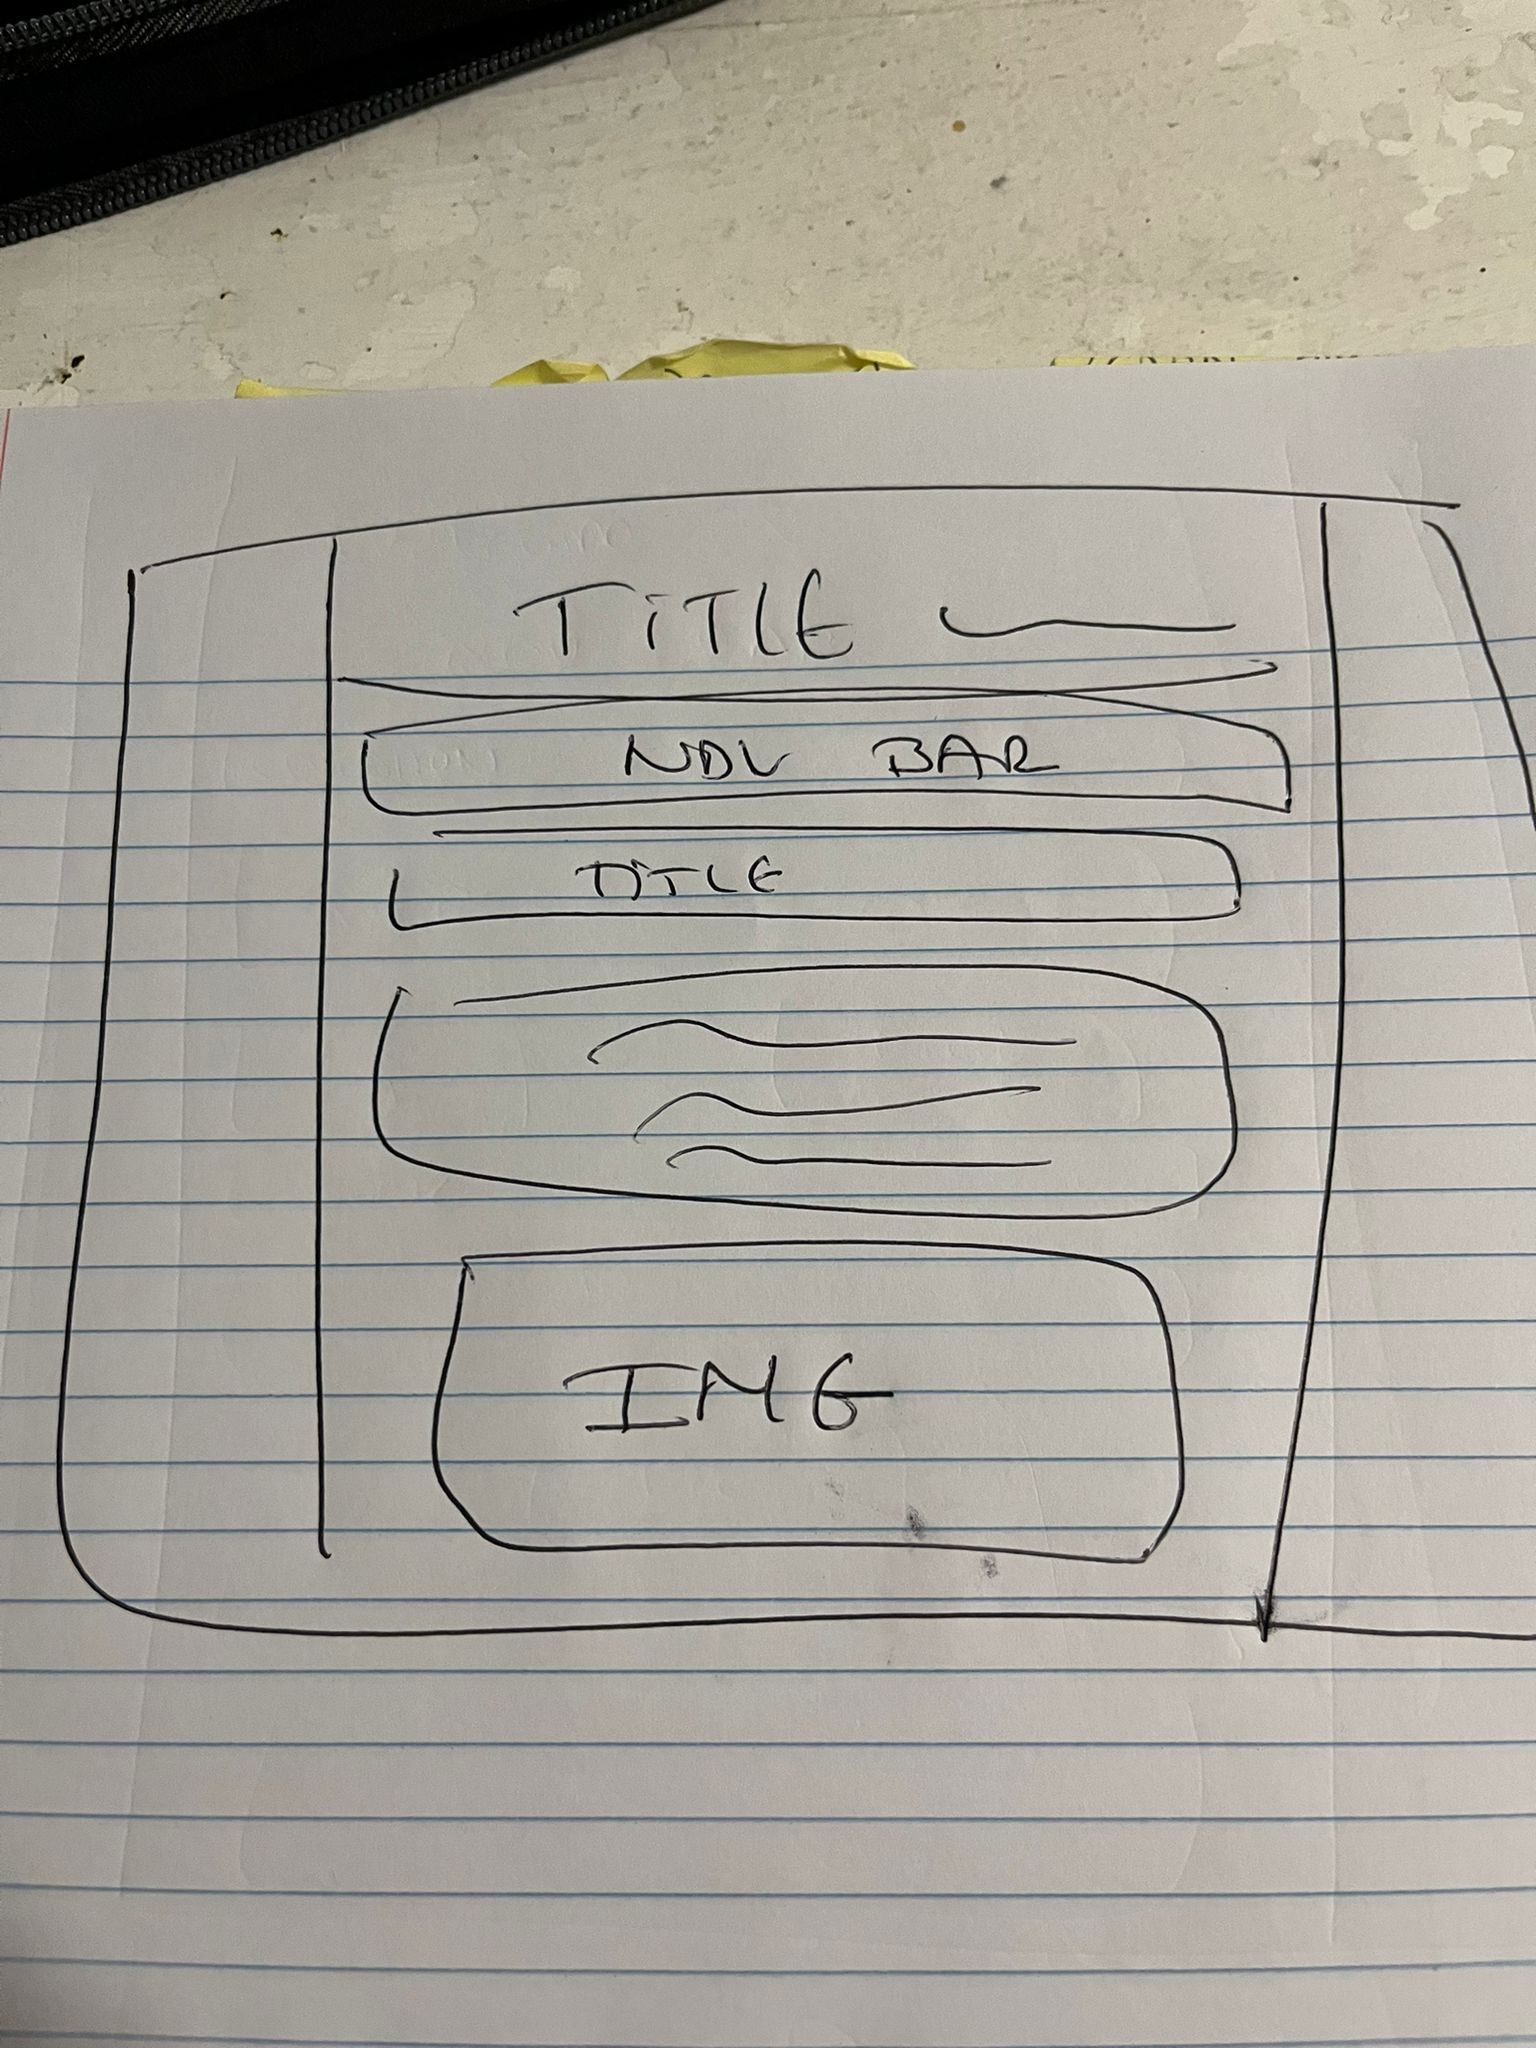 TiTLE
NAV BAR
TiTLE
IMG